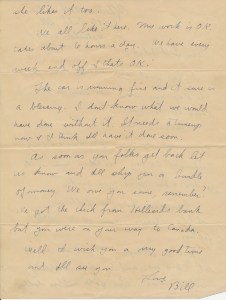 She likes it too.
We all like it here. My work is O.K.
takes about 10 hours a day. We have every
week end off & thats O.K.
The car is running fine and it sure is
a blessing. I dont know what we would
have done without it. It needs a tuneup
now & I think Ill have it done soon.
As soon as you folks get back let
us know and Ill ship you a bundle
of money. We owe you some, remember?
I got the check from bank
but you were on your way to
Well I wish you a very good time
and Ill see you
Love
Bill